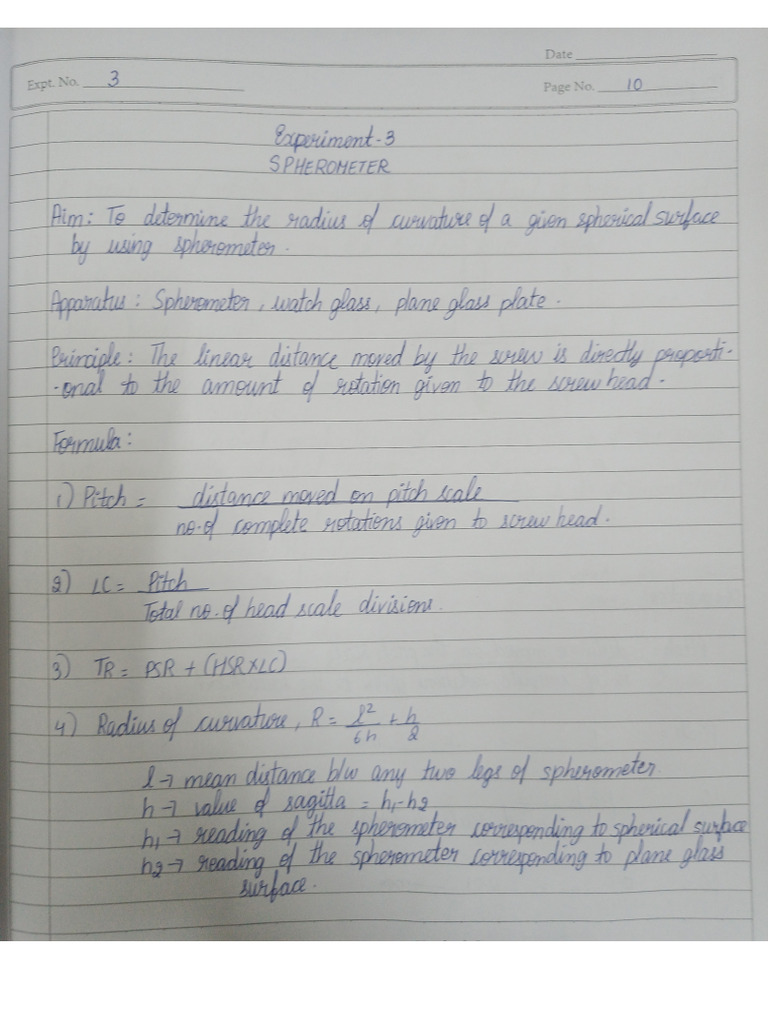 Date
Expt. No. 3
Page No. 10
Experiment-3
SPHEROMETER
Aim: To determine the radius of curvature of a given spherical surface
by using spherometer.
Apparatus: Spherometer, watch glass, plane glass plate.
Principle: The linear distance moved by the screw is directly proporti-
-onal to the amount of rotation given to the screw head.
Formula:
1) Pitch = distance moved on pitch scale
no. of complete rotations given to screw head.
2) LC = Pitch
Total no. of head scale divisions.
3) TR = PSR + (HSR×LC)
4) Radius of curvature, R = l²/6h + h/2
l → mean distance b/w any two legs of spherometer.
h → value of sagitta = h₁-h₂
h₁ → reading of the spherometer corresponding to spherical surface
h₂ → reading of the spherometer corresponding to plane glass
surface.